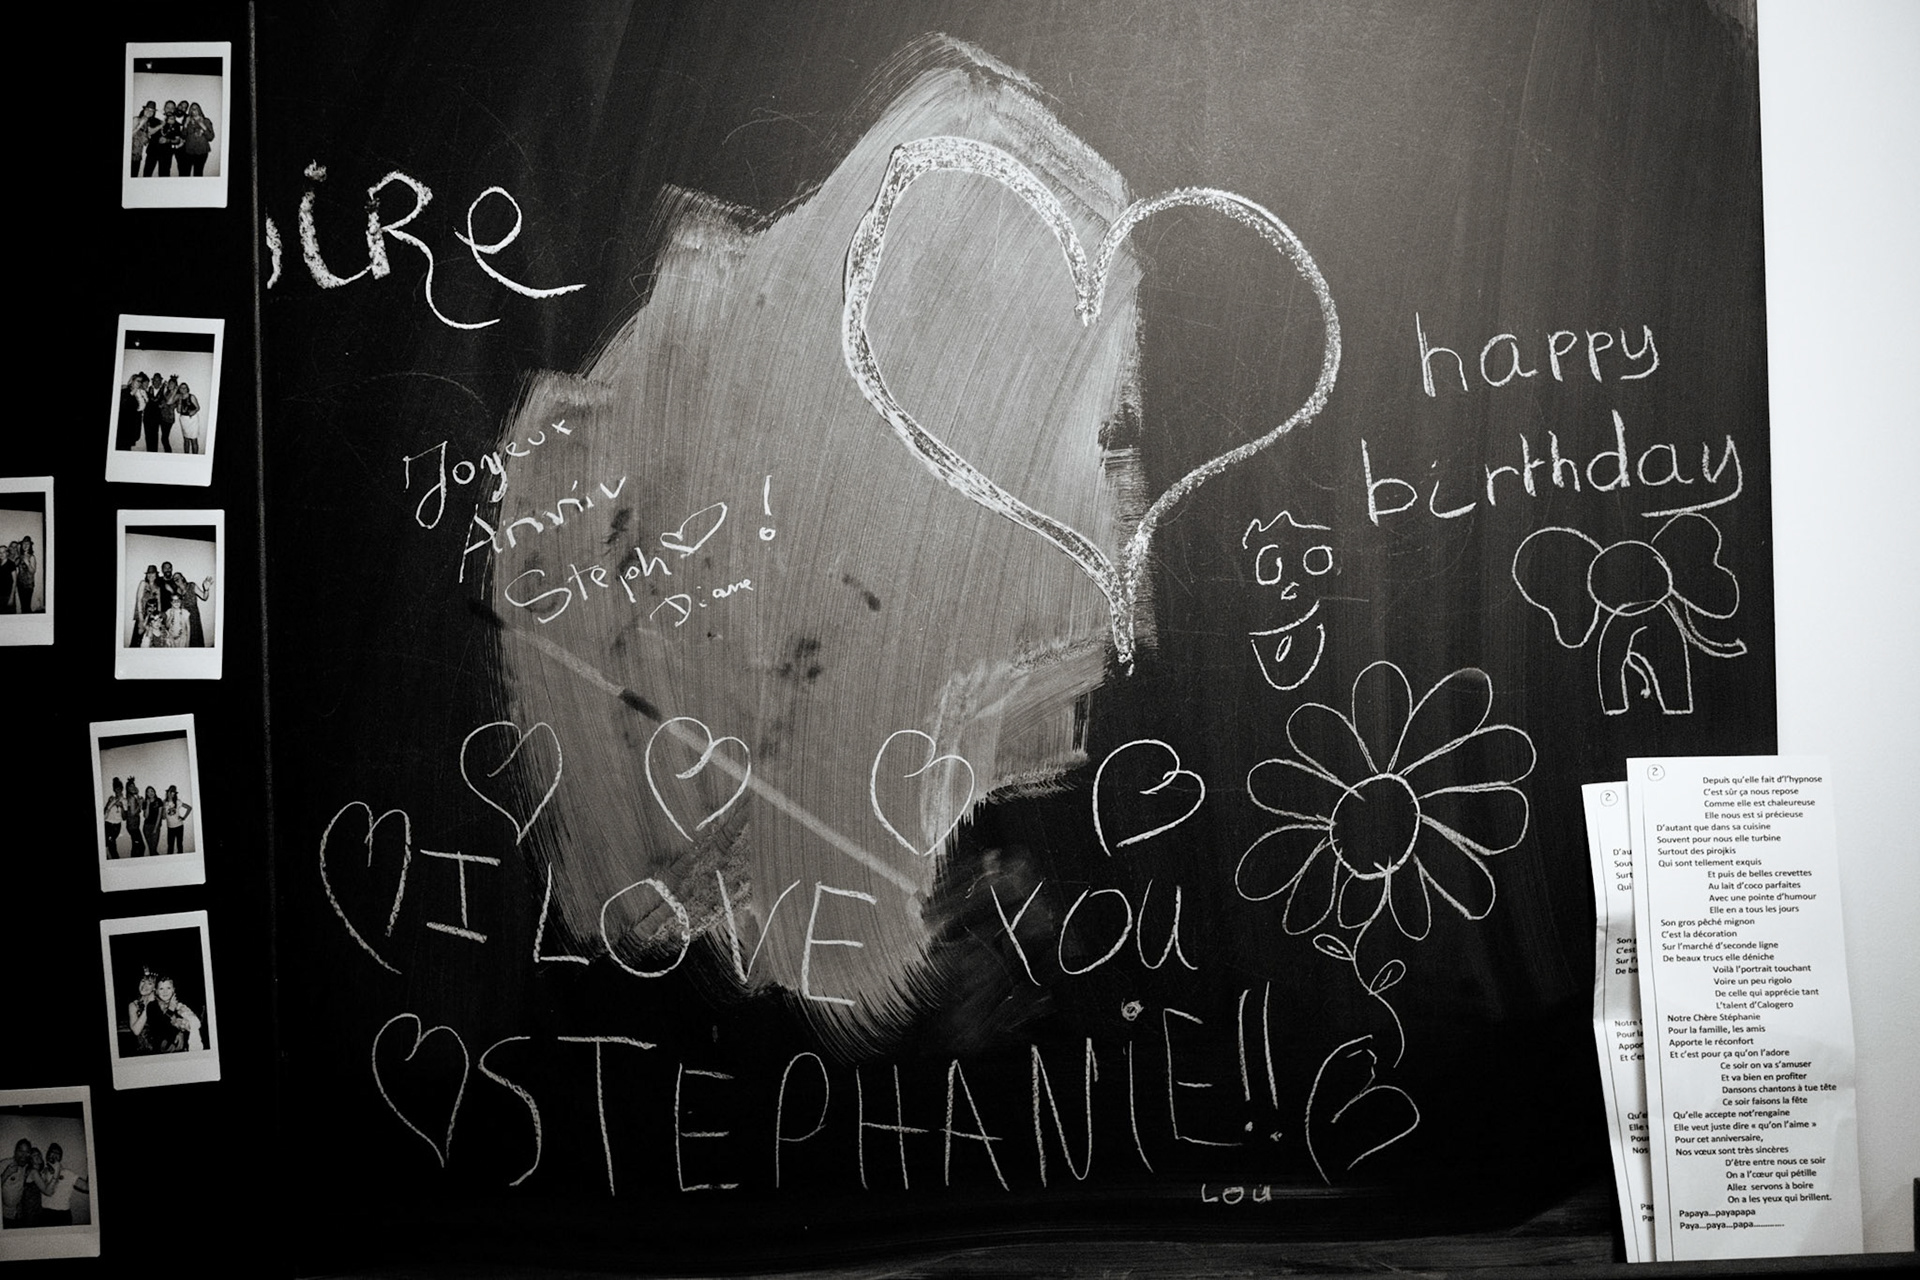 ire
happy
birthday
Joyeux
Anniv
Steph !
Diane
I LOVE YOU
STEPHANIE!!
LOU
2
D'au
Son g
C'est
Sur l'
De be
Notre C
Pour la
Appor
Et c'es
Qu'e
Elle v
Pour
Nos
2
Depuis qu'elle fait d'l'hypnose
C'est sûr ça nous repose
Comme elle est chaleureuse
Elle nous est si précieuse
D'autant que dans sa cuisine
Souvent pour nous elle turbine
Surtout des pirojkis
Qui sont tellement exquis
Et puis de belles crevettes
Au lait d'coco parfaites
Avec une pointe d'humour
Elle en a tous les jours
Son gros pêché mignon
C'est la décoration
Sur l'marché d'seconde ligne
De beaux trucs elle déniche
Voilà l'portrait touchant
Voire un peu rigolo
De celle qui apprécie tant
L'talent d'Calogero
Notre Chère Stéphanie
Pour la famille, les amis
Apporte le réconfort
Et c'est pour ça qu'on l'adore
Ce soir on va s'amuser
Et va bien en profiter
Dansons chantons à tue tête
Ce soir faisons la fête
Qu'elle accepte not'rengaine
Elle veut juste dire « qu'on l'aime »
Pour cet anniversaire,
Nos vœux sont très sincères
D'être entre nous ce soir
On a l'cœur qui pétille
Allez servons à boire
On a les yeux qui brillent.
Papaya...payapapa
Paya...paya...papa.............